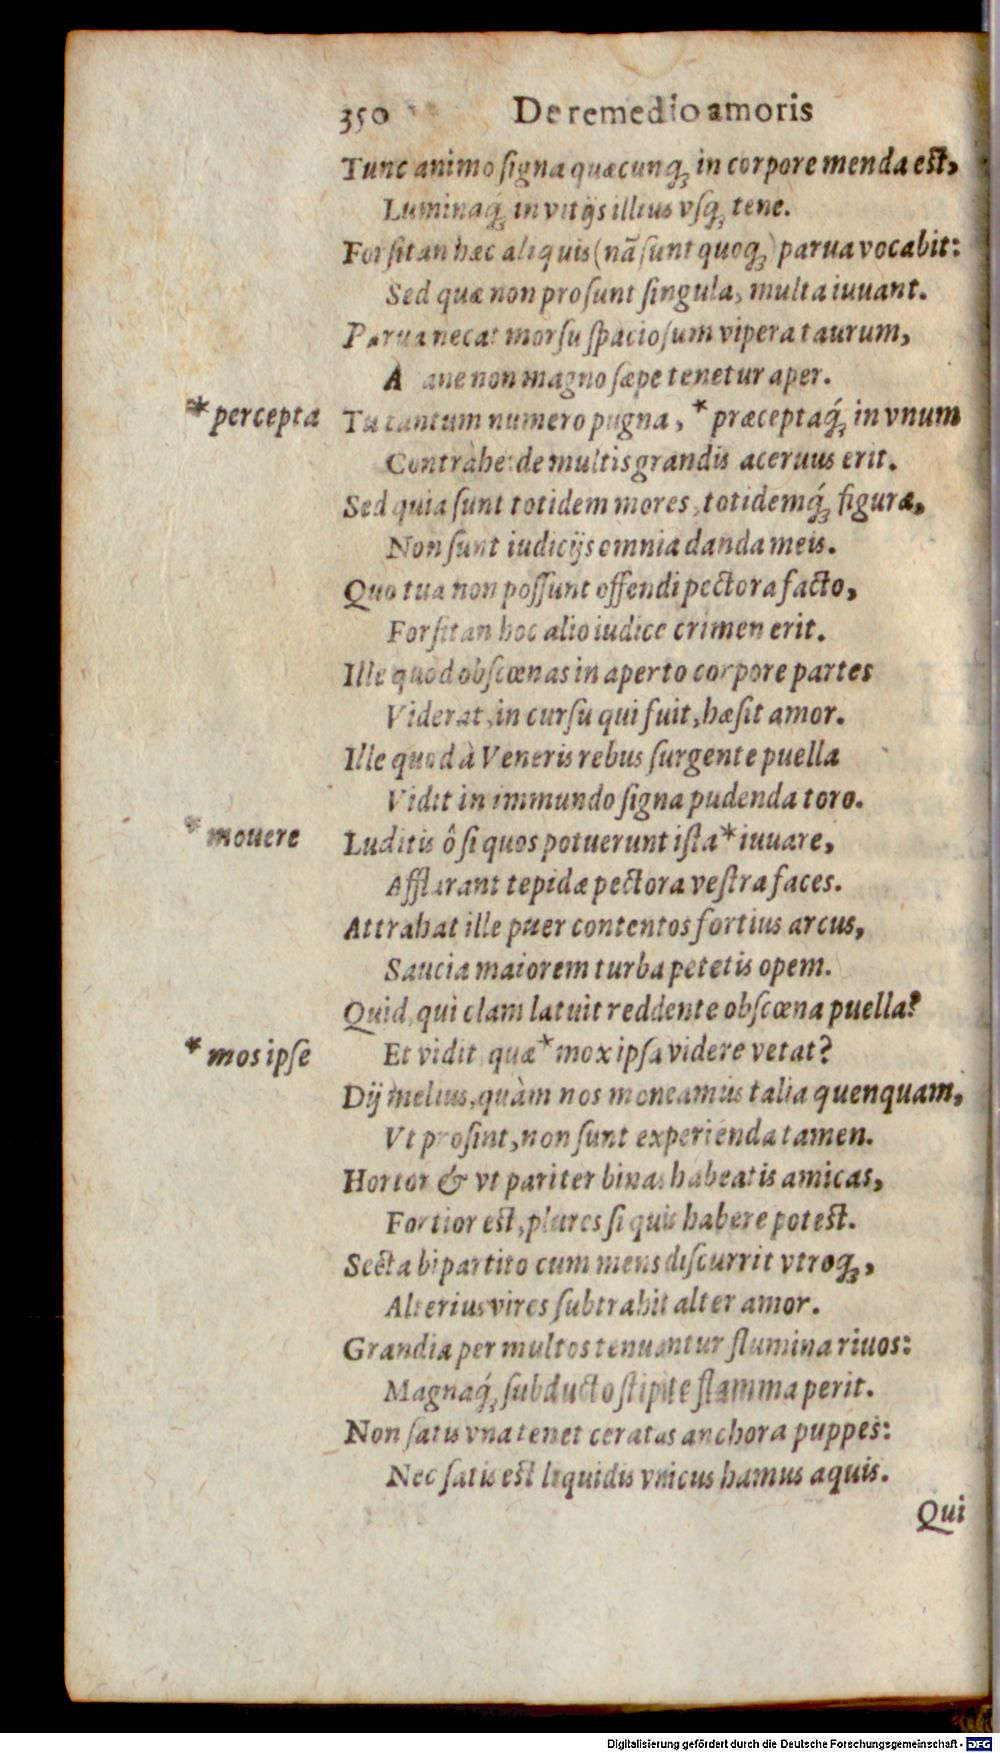 350 De remedio amoris
Tunc animo ſigna quæcunqꝫ in corpore menda eſt,
Luminaq́ꝫ in vitijs illius vſqꝫ tene.
Forſitan hæc aliquis (nã ſunt quoqꝫ) parua vocabit:
Sed quæ non proſunt ſingula, multa iuuant.
Parua necat morſu ſpacioſum vipera taurum,
A ane non magno ſæpe tenetur aper.
* percepta
Tu tantum numero pugna, * præceptaq́ꝫ in vnum
Contràhe: de multis grandis aceruus erit.
Sed quia ſunt totidem mores, totidemq́ꝫ figuræ,
Non ſunt iudicijs omnia danda meis.
Quo tua non poſſunt offendi pectora facto,
Forſitan hoc alio iudice crimen erit.
Ille quod obſcœnas in aperto corpore partes
Viderat, in curſu qui fuit, hæſit amor.
Ille quod à Veneris rebus ſurgente puella
Vidit in immundo ſigna pudenda toro.
* mouere
Luditis ô ſi quos potuerunt iſta * iuuare,
Afflarant tepidæ pectora veſtra faces.
Attrahat ille puer contentos fortius arcus,
Saucia maiorem turba petetis opem.
Quid, qui clam latuit reddente obſcœna puella?
* mos ipſe
Et vidit, quæ * mox ipſa videre vetat?
Dij melius, quàm nos moneamus talia quenquam,
Vt proſint, non ſunt experienda tamen.
Hortor & vt pariter binas habeatis amicas,
Fortior eſt, plures ſi quis habere poteſt.
Secta bipartito cum mens diſcurrit vtroqꝫ,
Alterius vires ſubtrahit alter amor.
Grandia per multos tenuantur flumina riuos:
Magnaq́ꝫ ſubducto ſtipite flamma perit.
Non ſatis vna tenet ceratas anchora puppes:
Nec ſatis eſt liquidis vnicus hamus aquis.
Qui
Digitalisierung gefördert durch die Deutsche Forschungsgemeinschaft - DFG